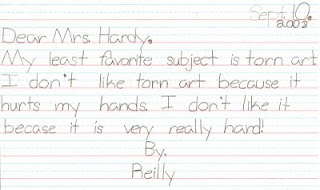 Sept. 10,
2003
Dear Mrs. Hardy,
My least favorite subject is torn art
I don't like torn art because it
hurts my hands. I don't like it
becase it is very really hard!
By,
Reilly